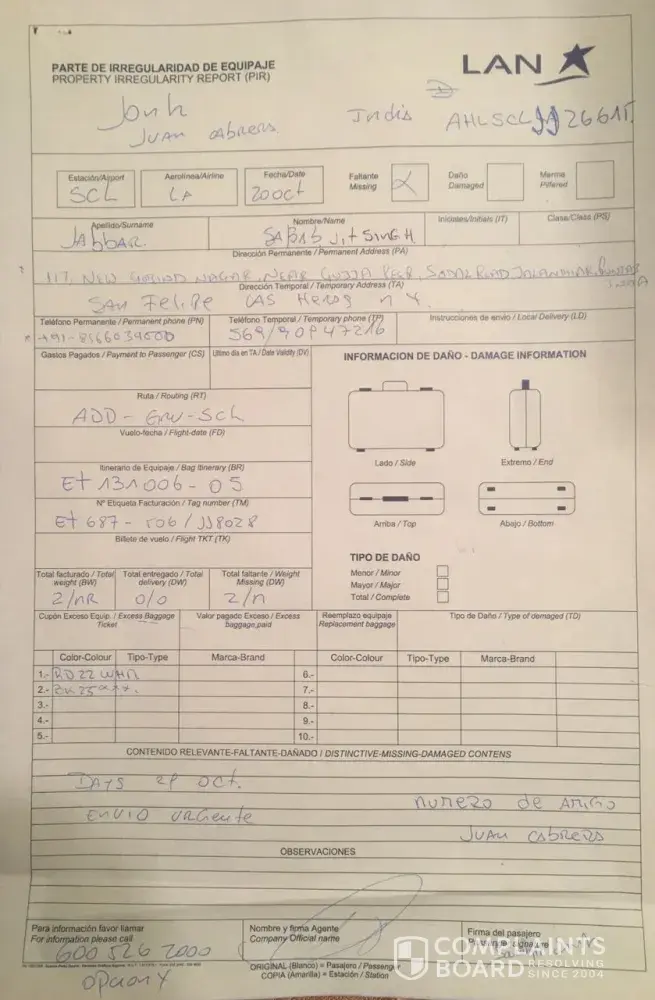 PARTE DE IRREGULARIDAD DE EQUIPAJE
PROPERTY IRREGULARITY REPORT (PIR)
LAN
Juan Cabrera
Indis
AHLSCL
26615
Estación/Airport
SCL
Aerolínea/Airline
LA
Fecha/Date
20 oct
Faltante
Missing
Daño
Damaged
Merma
Pilfered
Apellido/Surname
Jabbar
Nombre/Name
Jit Singh
Iniciales/Initials (IT)
Clase/Class (PS)
Dirección Permanente / Permanent Address (PA)
117, New Nagar, Near Road Jalandhar, Punjab
India
Dirección Temporal / Temporary Address (TA)
San Felipe Las Heros n 4
Teléfono Permanente / Permanent phone (PN)
Teléfono Temporal / Temporary phone (TP)
Instrucciones de envio / Local Delivery (LD)
Gastos Pagados / Payment to Passenger (CS)
Ultimo día en TA / Date Validity (DV)
INFORMACION DE DAÑO - DAMAGE INFORMATION
Ruta / Routing (RT)
ADD - GRU - SCL
Vuelo-fecha / Flight-date (FD)
Itinerario de Equipaje / Bag Itinerary (BR)
Et 131006 - 05
N° Etiqueta Facturación / Tag number (TM)
Et 687 - 506 / JJ8028
Billete de vuelo / Flight TKT (TK)
Lado / Side
Extremo / End
Arriba / Top
Abajo / Bottom
TIPO DE DAÑO
Menor / Minor
Mayor / Major
Total / Complete
Total facturado / Total weight (BW)
2/NR
Total entregado / Total delivery (DW)
0/0
Total faltante / Weight Missing (DW)
2/n
Cupón Exceso Equip. / Excess Baggage Ticket
Valor pagado Exceso / Excess baggage paid
Reemplazo equipaje
Replacement baggage
Tipo de Daño / Type of damaged (TD)
Color-Colour
Tipo-Type
Marca-Brand
Color-Colour
Tipo-Type
Marca-Brand
1.- RD 22 WHH
2.- BK 25
3.-
4.-
5.-
6.-
7.-
8.-
9.-
10.-
CONTENIDO RELEVANTE-FALTANTE-DAÑADO / DISTINCTIVE-MISSING-DAMAGED CONTENS
Days 29 Oct.
Envio urgente
numero de amigo
Juan Cabrera
OBSERVACIONES
Para información favor llamar
For information please call
600 526 2000
opcion 4
Nombre y firma Agente
Company Official name
Firma del pasajero
Passenger signature
ORIGINAL (Blanco) = Pasajero / Passenger
COPIA (Amarilla) = Estación / Station
COMPLAINTS
BOARD
RESOLVING
SINCE 2004